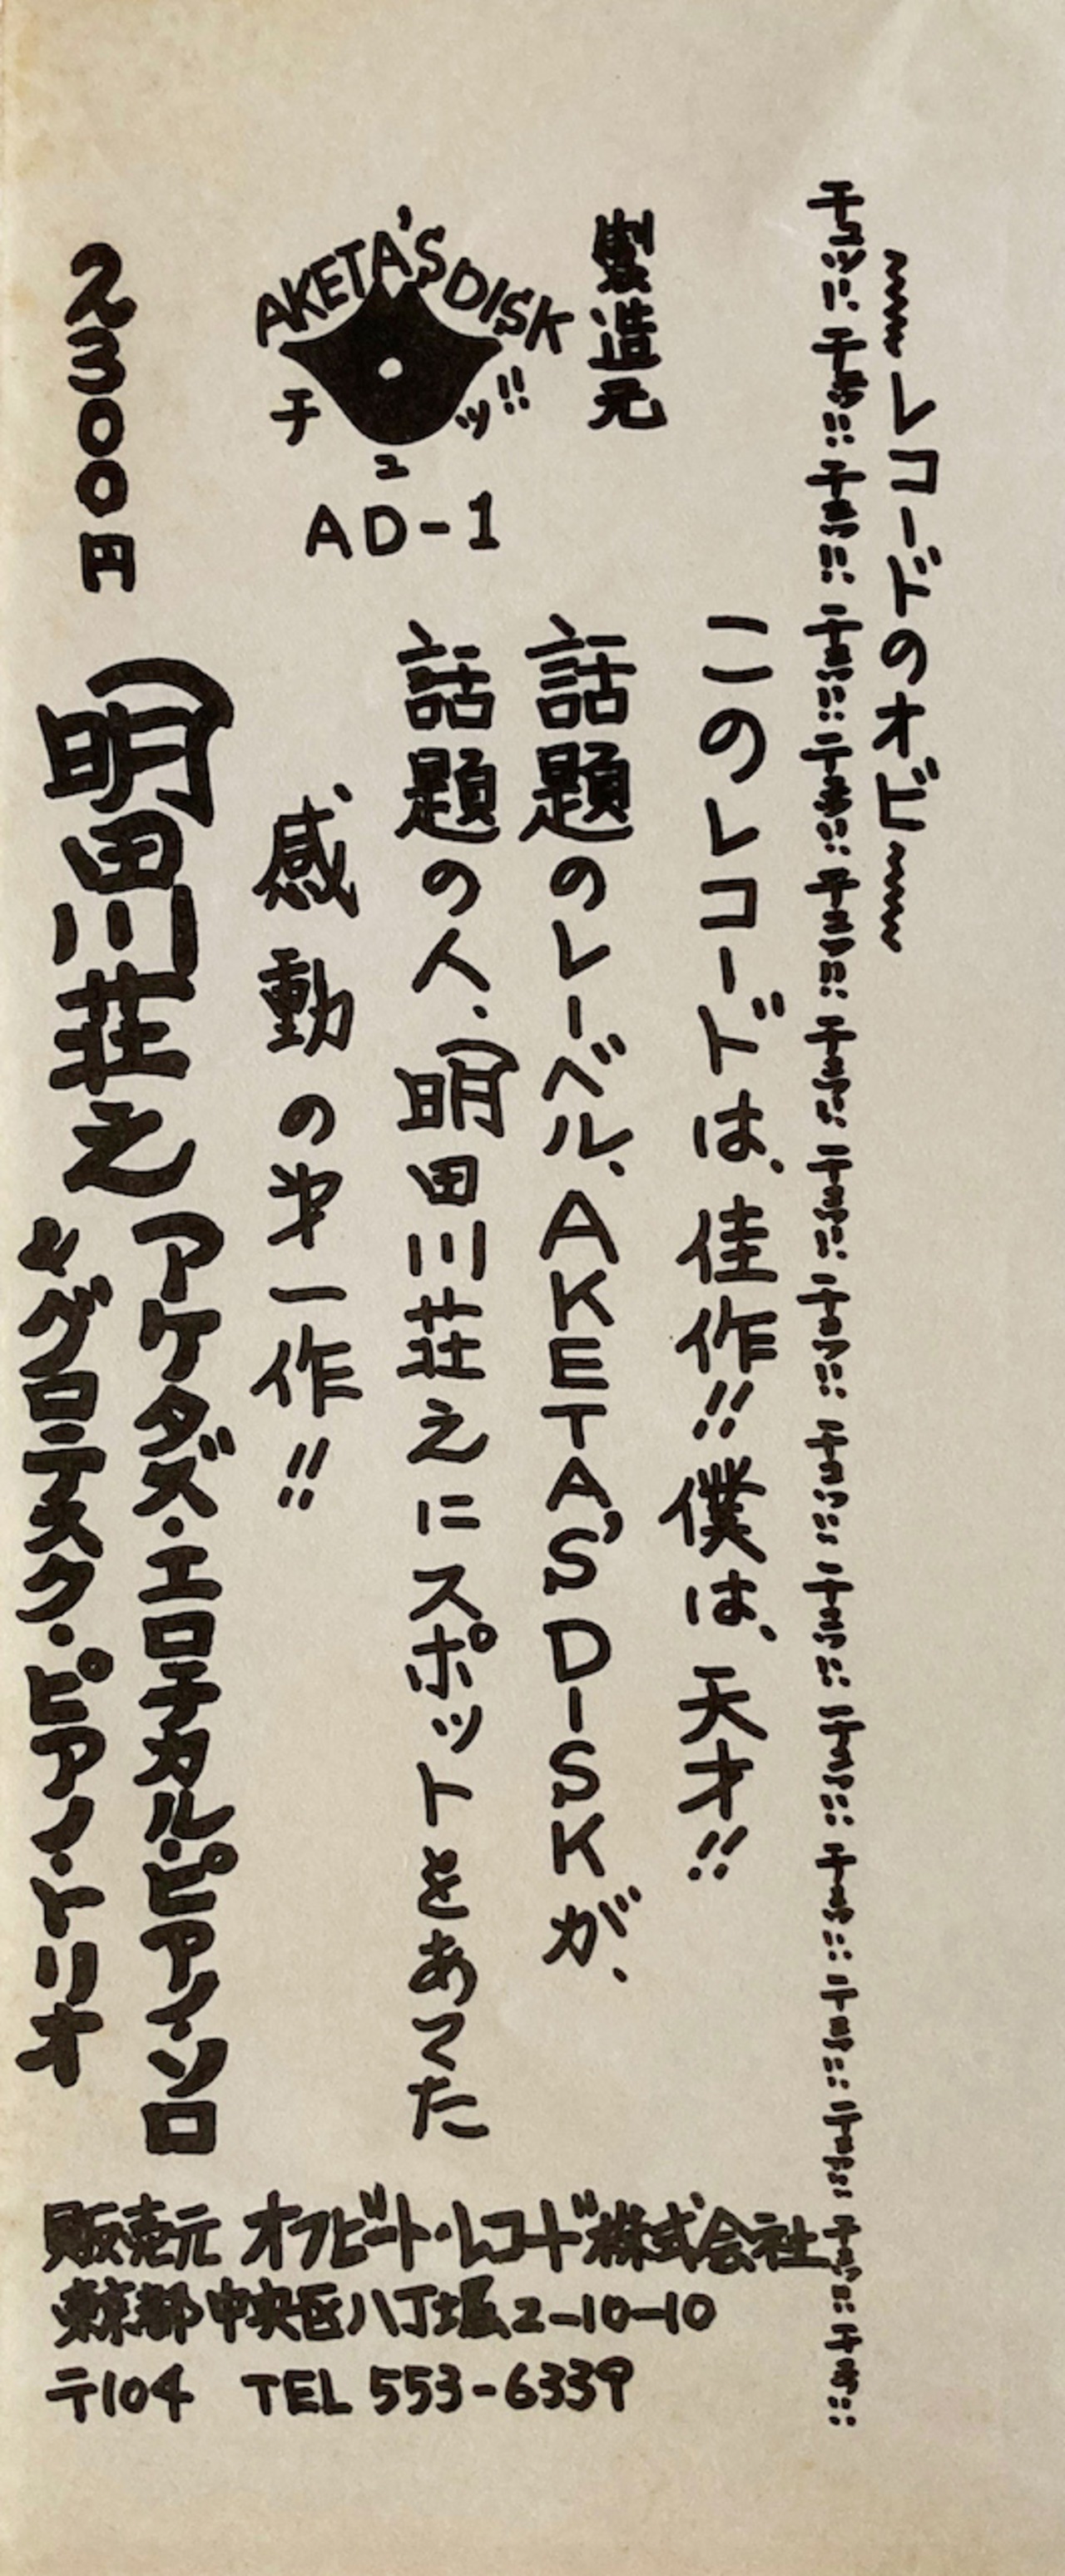 〰レコードのオビ〰
チュッ!! チュッ!! チュッ!! チュッ!! チュッ!! チュッ!! チュッ!! チュッ!! チュッ!! チュッ!! チュッ!! チュッ!! チュッ!! チュッ!! チュッ!! チュッ!! チュッ!!
製造元
このレコードは、佳作!!僕は、天才!!
話題のレーベル、AKETA'S DISKが、
話題の人、明田川荘之にスポットとあてた
感動の第一作!!
AKETA'S DISK
チュッ!!
AD-1
2300円
明田川荘之
アケタズ・エロチカル・ピアノ・ソロ
&グロテスク・ピアノ・トリオ
販売元 オフビート・レコード株式会社
東京都中央区八丁堀2-10-10
〒104 TEL 553-6339